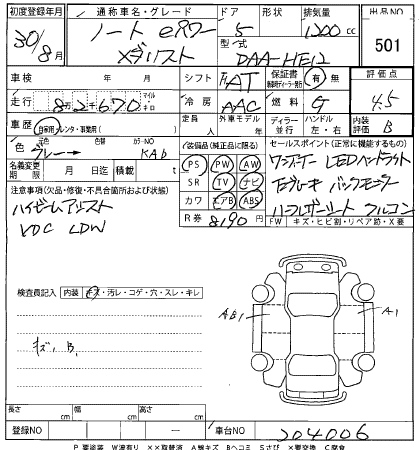 初度登録年月 通称車名・グレード ドア 形状 排気量 出品NO
30/8月 ノート eパワー メダリスト 5 1200cc 501
型式 DAA-HE12
車検 年 月 シフト AT 保証書 有 無 評価点
走行 8万2千670 マイル キロ 冷房 AAC 燃料 G 4.5
車歴 自家用・レンタ・事業用( ) 定員 人 外車モデル 年 ディーラー 並行 ハンドル 左・右 内装評価 B
色 元色 グレー→ 色替 カラーNO KAD
名義変更期限 月 日 積載 t
装備品(純正品に限る)
PS PW AW
SR TV ナビ
カワ エアB ABS
R券 8190円
セールスポイント(正常に機能するもの)
ワンオーナー LEDヘッドライト
Eブレーキ バックモニター
ハーフレザーシート フルコン
FW キズ・ヒビ割・リペア跡・X要
注意事項(欠品・修復・不具合箇所および状態)
ハイビームアシスト
VDC LDW
検査員記入 内装 キズ・汚レ・コゲ・穴・スレ・キレ
キズ、B、
AB1 A1
長さ cm 幅 cm 高さ cm
登録NO 車台NO 204006
P要塗装 W波有り XX取替済 A線キズ Bヘコミ Sさび X要交換 C腐食